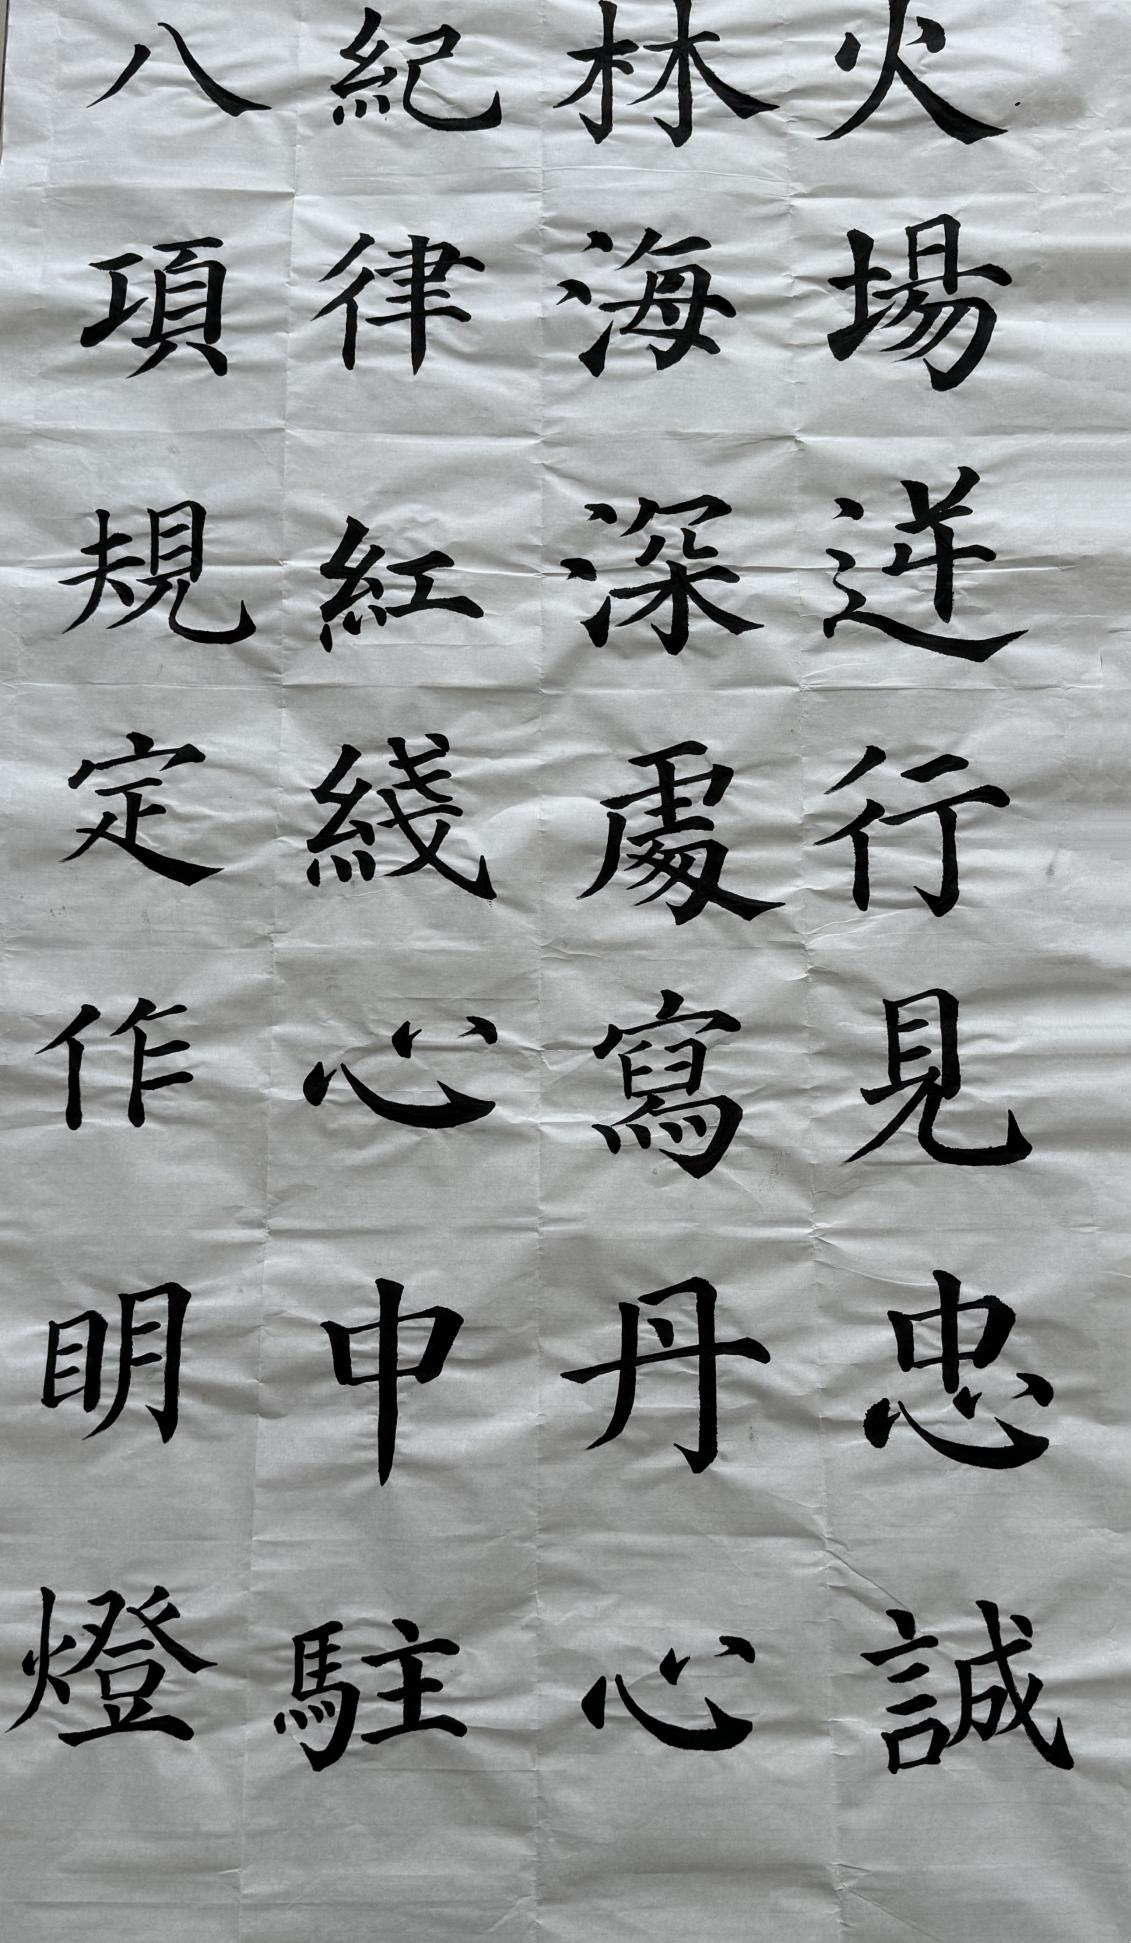 火場逆行見忠誠
林海深處寫丹心
紀律紅綫心中駐
八項規定作明燈